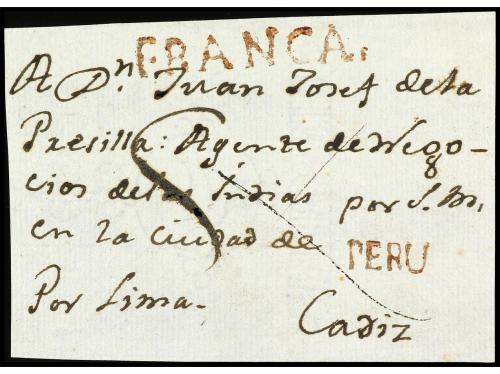 FRANCA.
A Dn. Juan Josef dela
Presilla: Agente de Nego-
cios delas Indias por S. M.
en la Ciudad de
PERU
Por Lima-
Cadiz